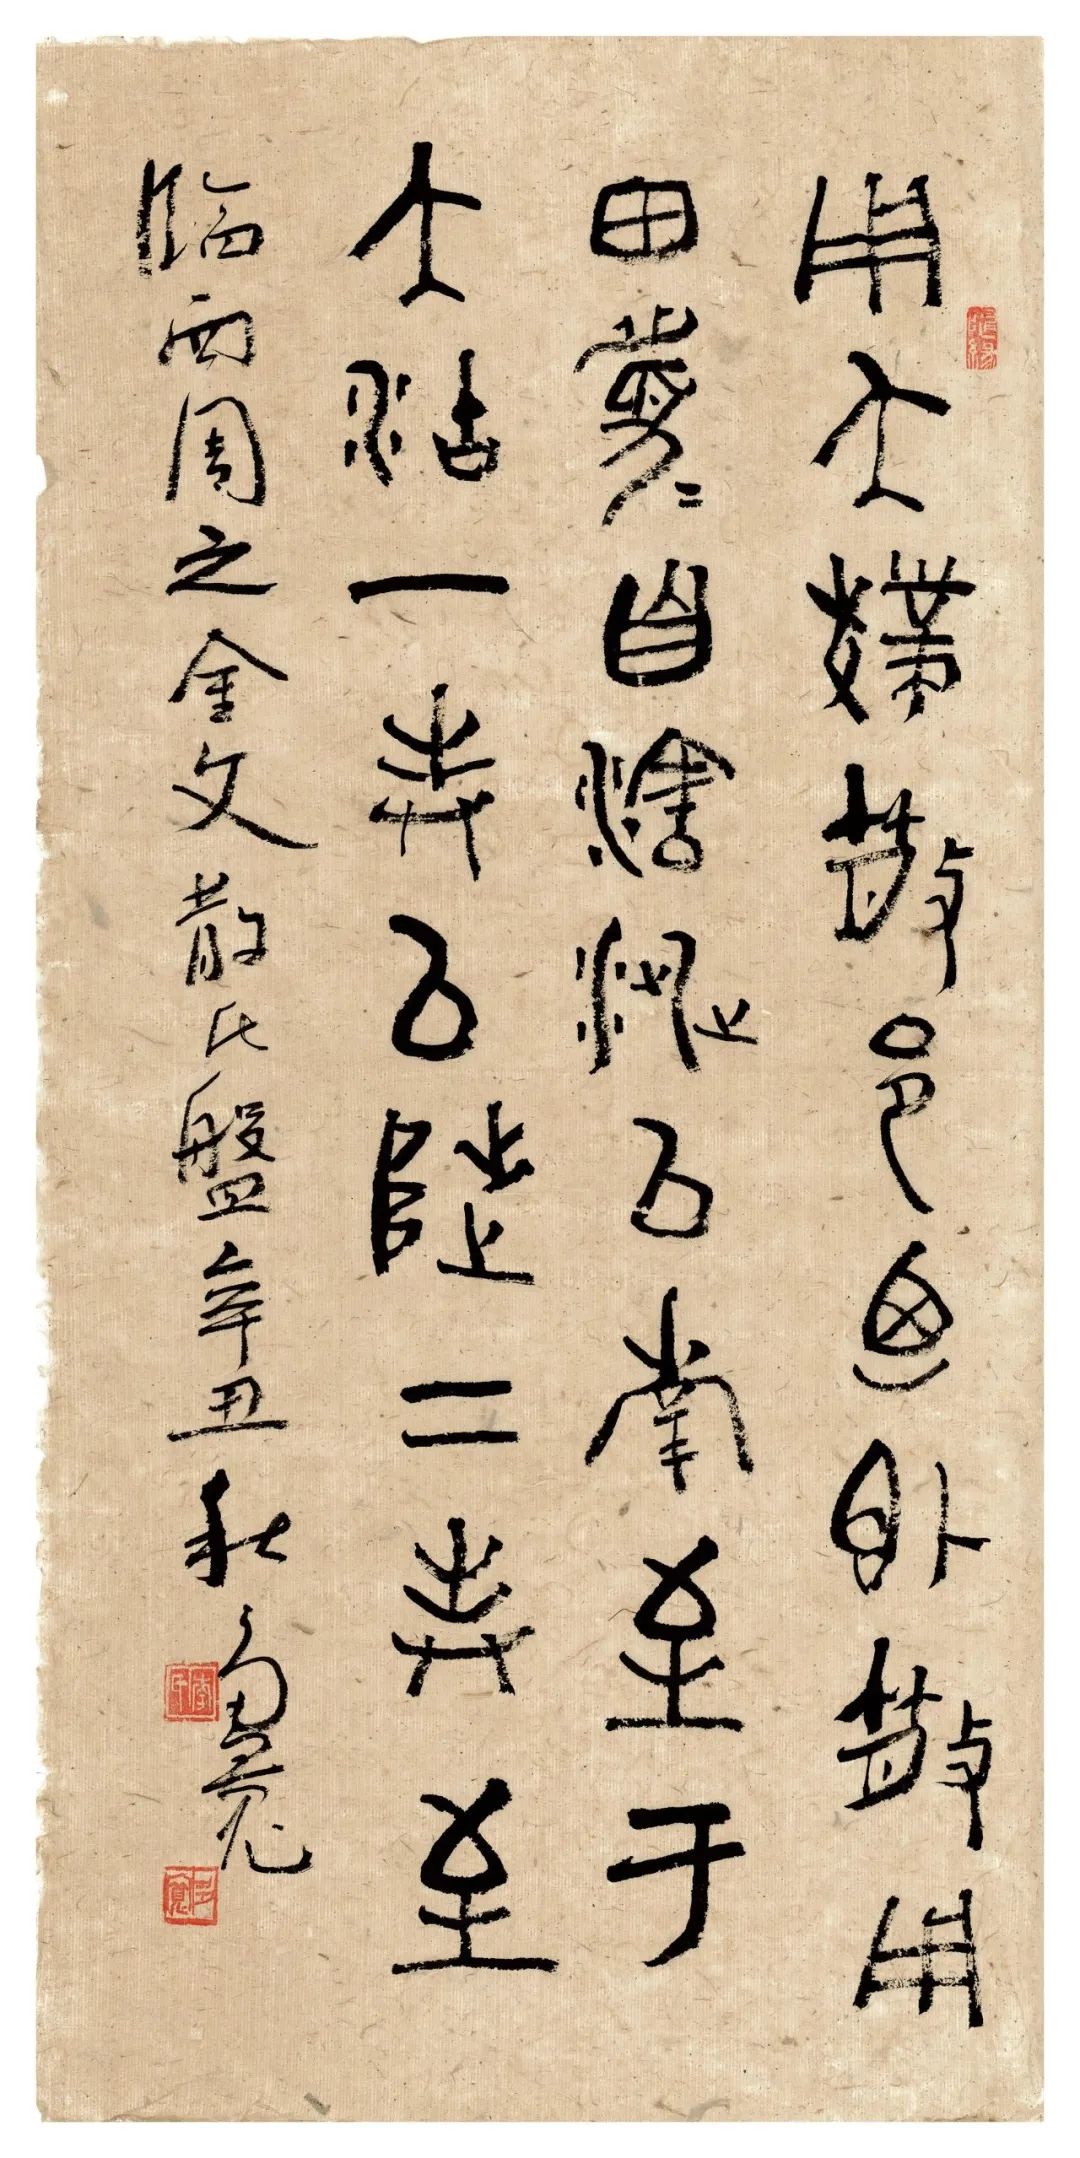 用夨𢷎散邑迺即散用
田眉自瀗涉以南至于
大沽一封以陟二封至
臨西周之金文散氏盤辛丑秋